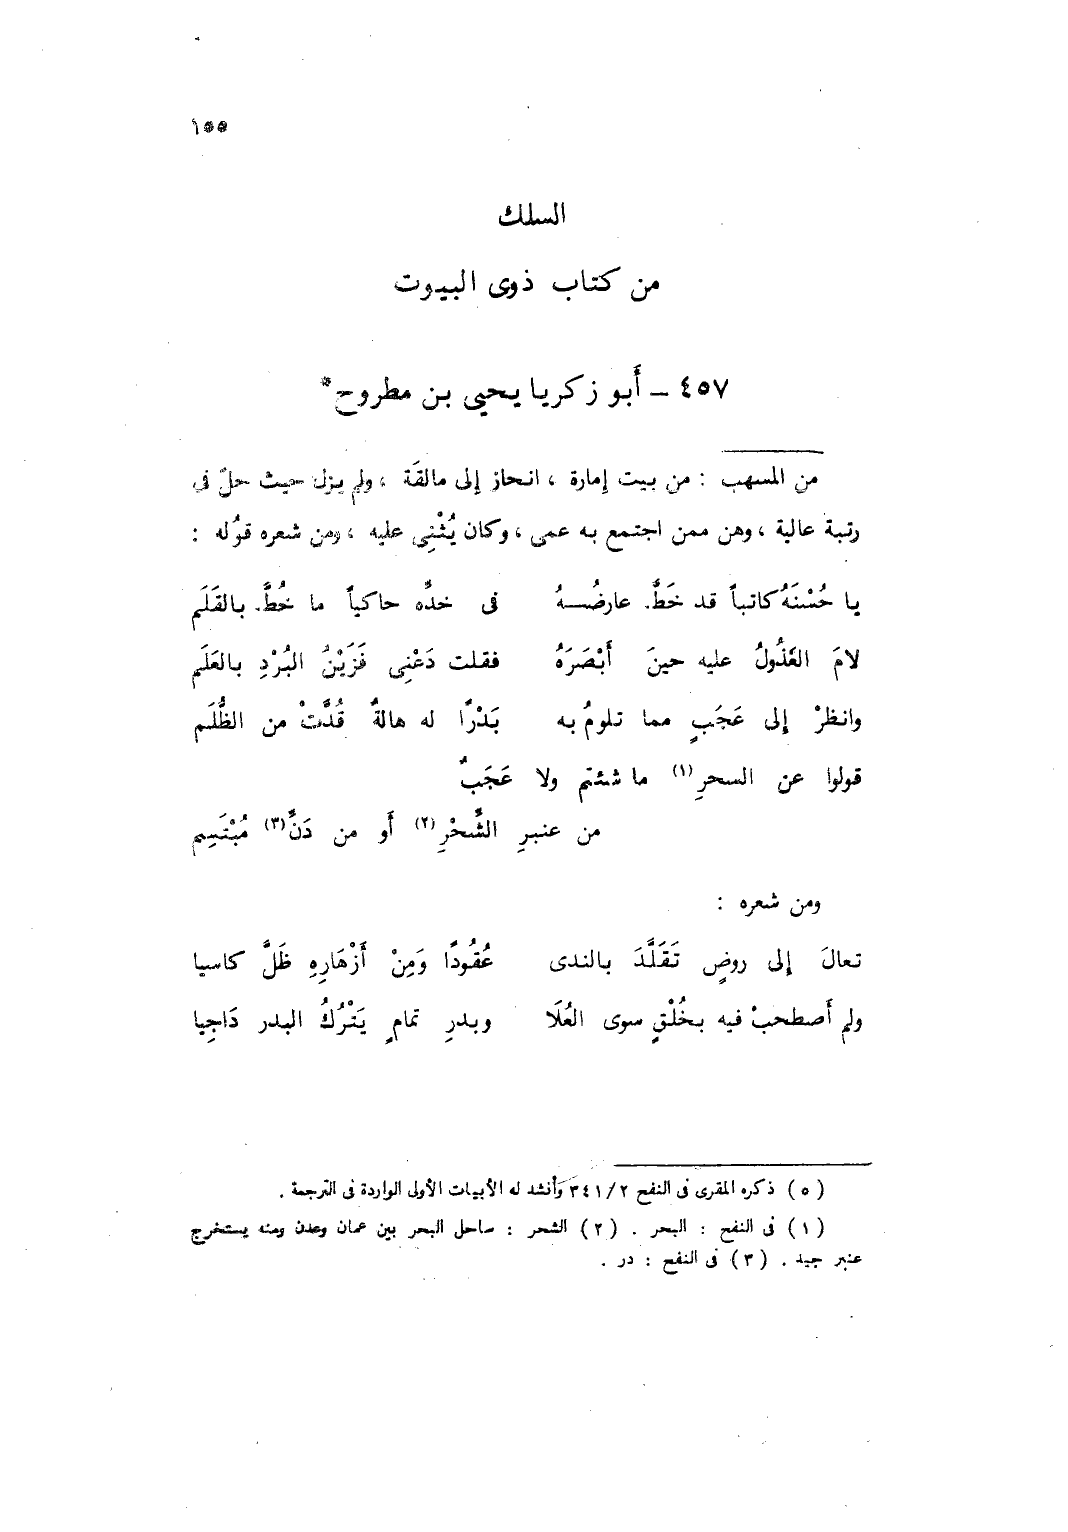 ١٥٥
السلك
من كتاب ذوى البيوت
٤٥٧ – أَبو زكريا يحيى بن مطروح*
من المسهب : من بيت إمارة ، انحاز إلى مالقَة ، ولم يزل حيث حلّ فى
رتبة عالية ، وهن ممن اجتمع به عمى ، وكان يُثْنِى عليه ، ومن شعره قوُله :
يا حُسْنَهُ كاتباً قد خَطَّ. عارضُــهُ فى خدِّه حاكياً ما خُطَّ. بالقَلَم
لامَ العَذُولُ عليه حينَ أَبْصَرَهُ فقلت دَعْنِى فَزَيْنُ البُرْدِ بالعَلَم
وانظرْ إلى عَجَبٍ مما تلومُ به بَدْرًا له هالةٌ قُدَّتْ من الظُّلَم
قولوا عن السحرِ(١) ما شئتم ولا عَجَبٌ
من عنبرِ الشَّحْرِ(٢) أَو من دَنٍّ(٣) مُبْتَسِم
ومن شعره :
تعالَ إلى روضٍ تَقَلَّدَ بالندى عُقُودًا وَمِنْ أَزْهَارِهِ ظَلَّ كاسيا
ولم أَصطحبْ فيه بخُلْقٍ سوى العُلَا وبدرِ تمامٍ يَتْرُكُ البدر دَاجِيا
(٥) ذكره المقرى فى النفح ٣٤١/٢ وأنشد له الأبيات الأولى الواردة فى الترجمة .
(١) فى النفح : البحر . (٢) الشحر : ساحل البحر بين عمان وعدن ومنه يستخرج
عنبر جيد . (٣) فى النفح : در .